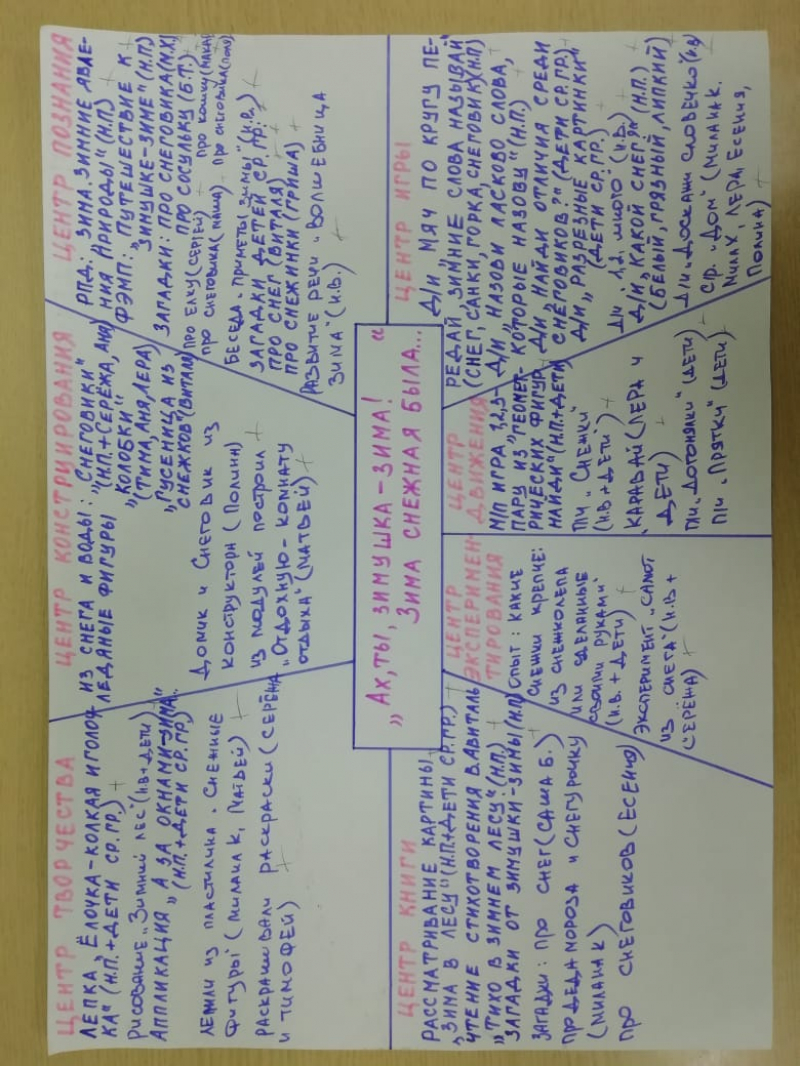 ЦЕНТР ТВОРЧЕСТВА
ЛЕПКА „ЁЛОЧКА-КОЛКАЯ ИГОЛОЧ
КА“ (Н.П.+ДЕТИ СР.ГР.)
Рисование „Зимний лес“ (н.в+дети)
Аппликация „А ЗА ОКНАМИ-ЗИМА“
(Н.П.+ДЕТИ СР.ГР)
Лепили из пластилина „Снежные
фигуры“ (Милана К, Матвей)
Раскрашивали раскраски (Серёжа
и Тимофей)
ЦЕНТР КОНСТРУИРОВАНИЯ
ИЗ СНЕГА И ВОДЫ: „СНЕГОВИКИ“
ЛЕДЯНЫЕ ФИГУРЫ (Н.П.+СЕРЁЖА, АНЯ)
„КОЛОБКИ“
(ТИМА, АНЯ, ЛЕРА)
„ГУСЕНИЦА ИЗ
СНЕЖКОВ“ (ВИТАЛЯ)
Домик и Снеговик из
конструктора (Полина)
из модулей построил
„Отдохную-комнату
отдыха“ (Матвей)
ЦЕНТР ПОЗНАНИЯ
РПД: ЗИМА. ЗИМНИЕ ЯВЛЕ-
НИЯ ПРИРОДЫ“ (Н.П)
ФЭМП: „ПУТЕШЕСТВИЕ К
ЗИМУШКЕ-ЗИМЕ“ (Н.П)
ЗАГАДКИ: ПРО СНЕГОВИКА (М.К)
ПРО СОСУЛЬКУ (Б.Т.)
про ёлку (Сергей) про кошку
про снеговика (Маша) про снеговика
Беседа „Приметы зимы“ (н.в.)
ЗАГАДКИ ДЕТЕЙ СР.ГР:
ПРО СНЕГ (ВИТАЛЯ)
ПРО СНЕЖИНКИ (ГРИША)
РАЗВИТИЕ РЕЧИ „ВОЛШЕБНИЦА
ЗИМА“ (Н.В.)
„АХ, ТЫ, ЗИМУШКА-ЗИМА!
ЗИМА СНЕЖНАЯ БЫЛА...“
ЦЕНТР КНИГИ
РАССМАТРИВАНИЕ КАРТИНЫ
„ЗИМА В ЛЕСУ“ (Н.П+ДЕТИ СР.ГР.)
ЧТЕНИЕ СТИХОТВОРЕНИЯ
„ТИХО В ЗИМНЕМ ЛЕСУ“ (Н.П.)
ЗАГАДКИ ОТ ЗИМУШКИ-ЗИМЫ (Н.П)
Загадки: про снег (Саша Б.)
Про Деда Мороза и Снегурочку
(Милана К)
Про снеговиков (Есения)
ЦЕНТР
ЭКСПЕРИМЕН
ТИРОВАНИЯ
Опыт: какие
снежки крепче:
из снежколепа
или сделанные
своими руками“
(н.в.+дети)
Эксперимент „Салют
из снега“ (н.в.+
Серёжа)
ЦЕНТР
ДВИЖЕНИЯ
М/П ИГРА „1,2,3-
ПАРУ ИЗ „ГЕОМЕТ-
РИЧЕСКИХ ФИГУР
НАЙДИ“ (Н.П+ДЕТИ)
П/и „Снежки“
(н.в+дети)
Каравай (Лера и
дети)
П/и „Догонялки“ (дети)
П/и „Прятки“ (дети)
ЦЕНТР ИГРЫ
Д/И „МЯЧ ПО КРУГУ ПЕ-
РЕДАЙ ЗИМНИЕ СЛОВА НАЗЫВАЙ“
(СНЕГ, САНКИ, ГОРКА, СНЕГОВИК) (Н.П)
Д/И „НАЗОВИ ЛАСКОВО СЛОВА,
КОТОРЫЕ НАЗОВУ“ (Н.П)
Д/И „НАЙДИ ОТЛИЧИЯ СРЕДИ
СНЕГОВИКОВ?“ (ДЕТИ СР.ГР.)
Д/И „РАЗРЕЗНЫЕ КАРТИНКИ“
(ДЕТИ СР.ГР.)
Д/и „1,2, много“ (н.в.)
Д/И „КАКОЙ СНЕГ?“ (Н.П.)
(БЕЛЫЙ, ГРЯЗНЫЙ, ЛИПКИЙ)
Д/и „Доскажи словечко“ (н.в)
с/р „Дом“ (Милана К.
Мила Х, Лера, Есения,
Полина)